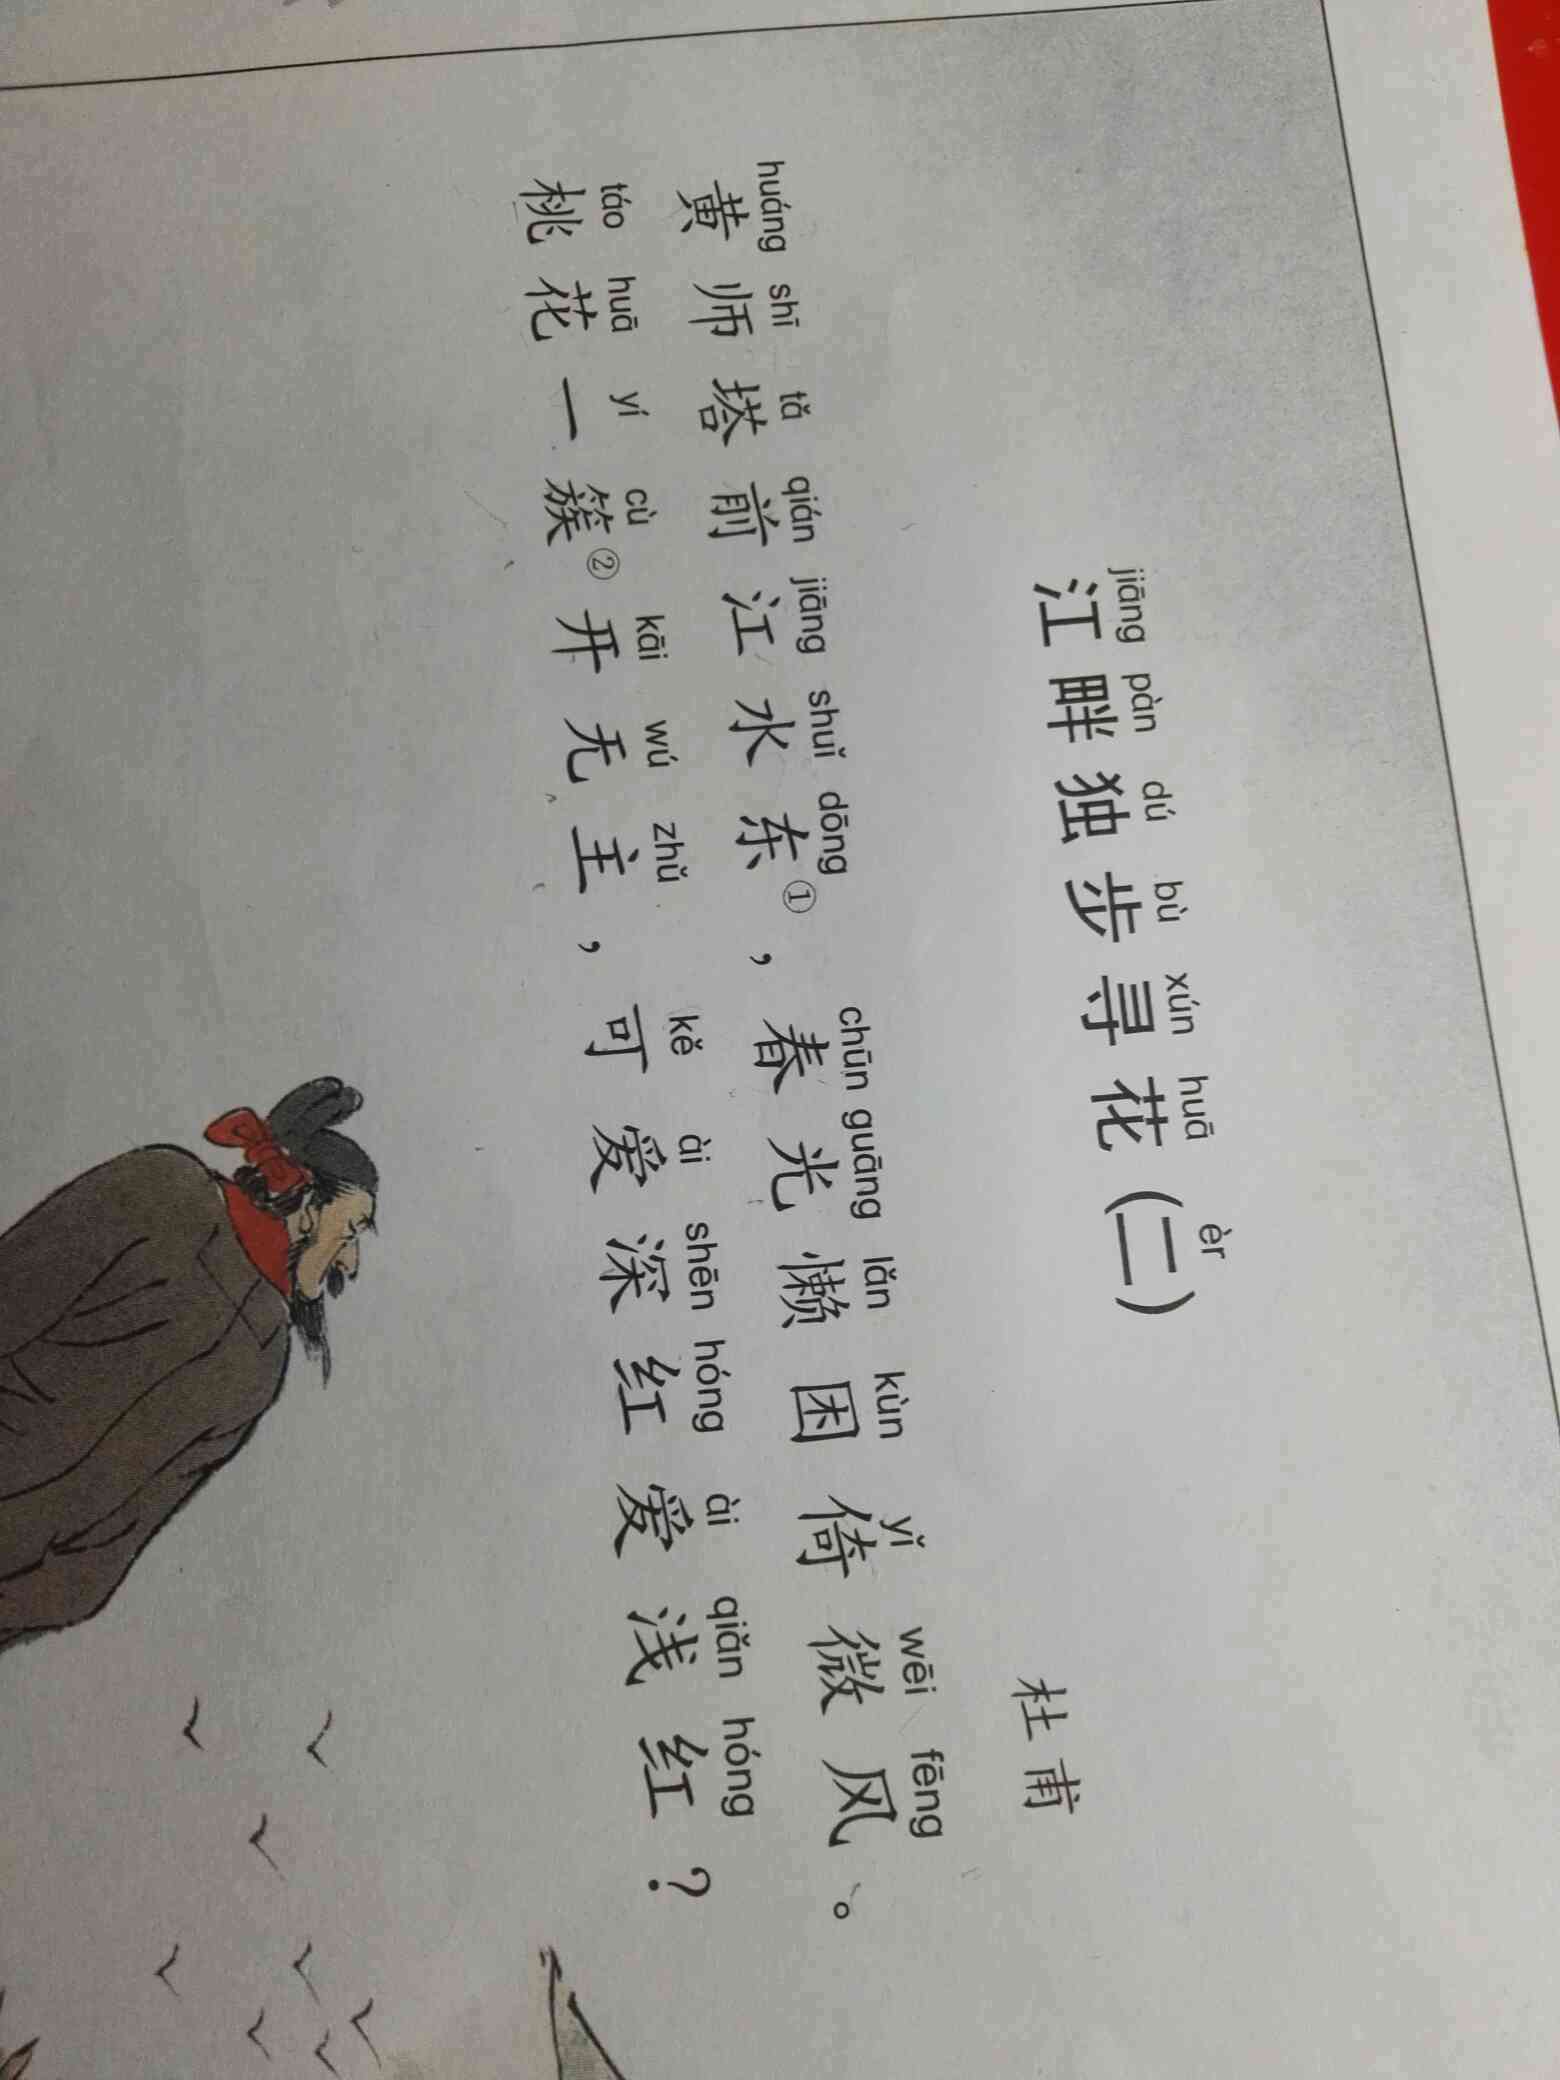 jiāng pàn dú bù xún huā èr
江畔独步寻花（二）
杜甫
huáng shī tǎ qián jiāng shuǐ dōng chūn guāng lǎn kùn yǐ wēi fēng
黄师塔前江水东①，春光懒困倚微风。
táo huā yí cù kāi wú zhǔ kě ài shēn hóng ài qiǎn hóng
桃花一簇②开无主，可爱深红爱浅红？